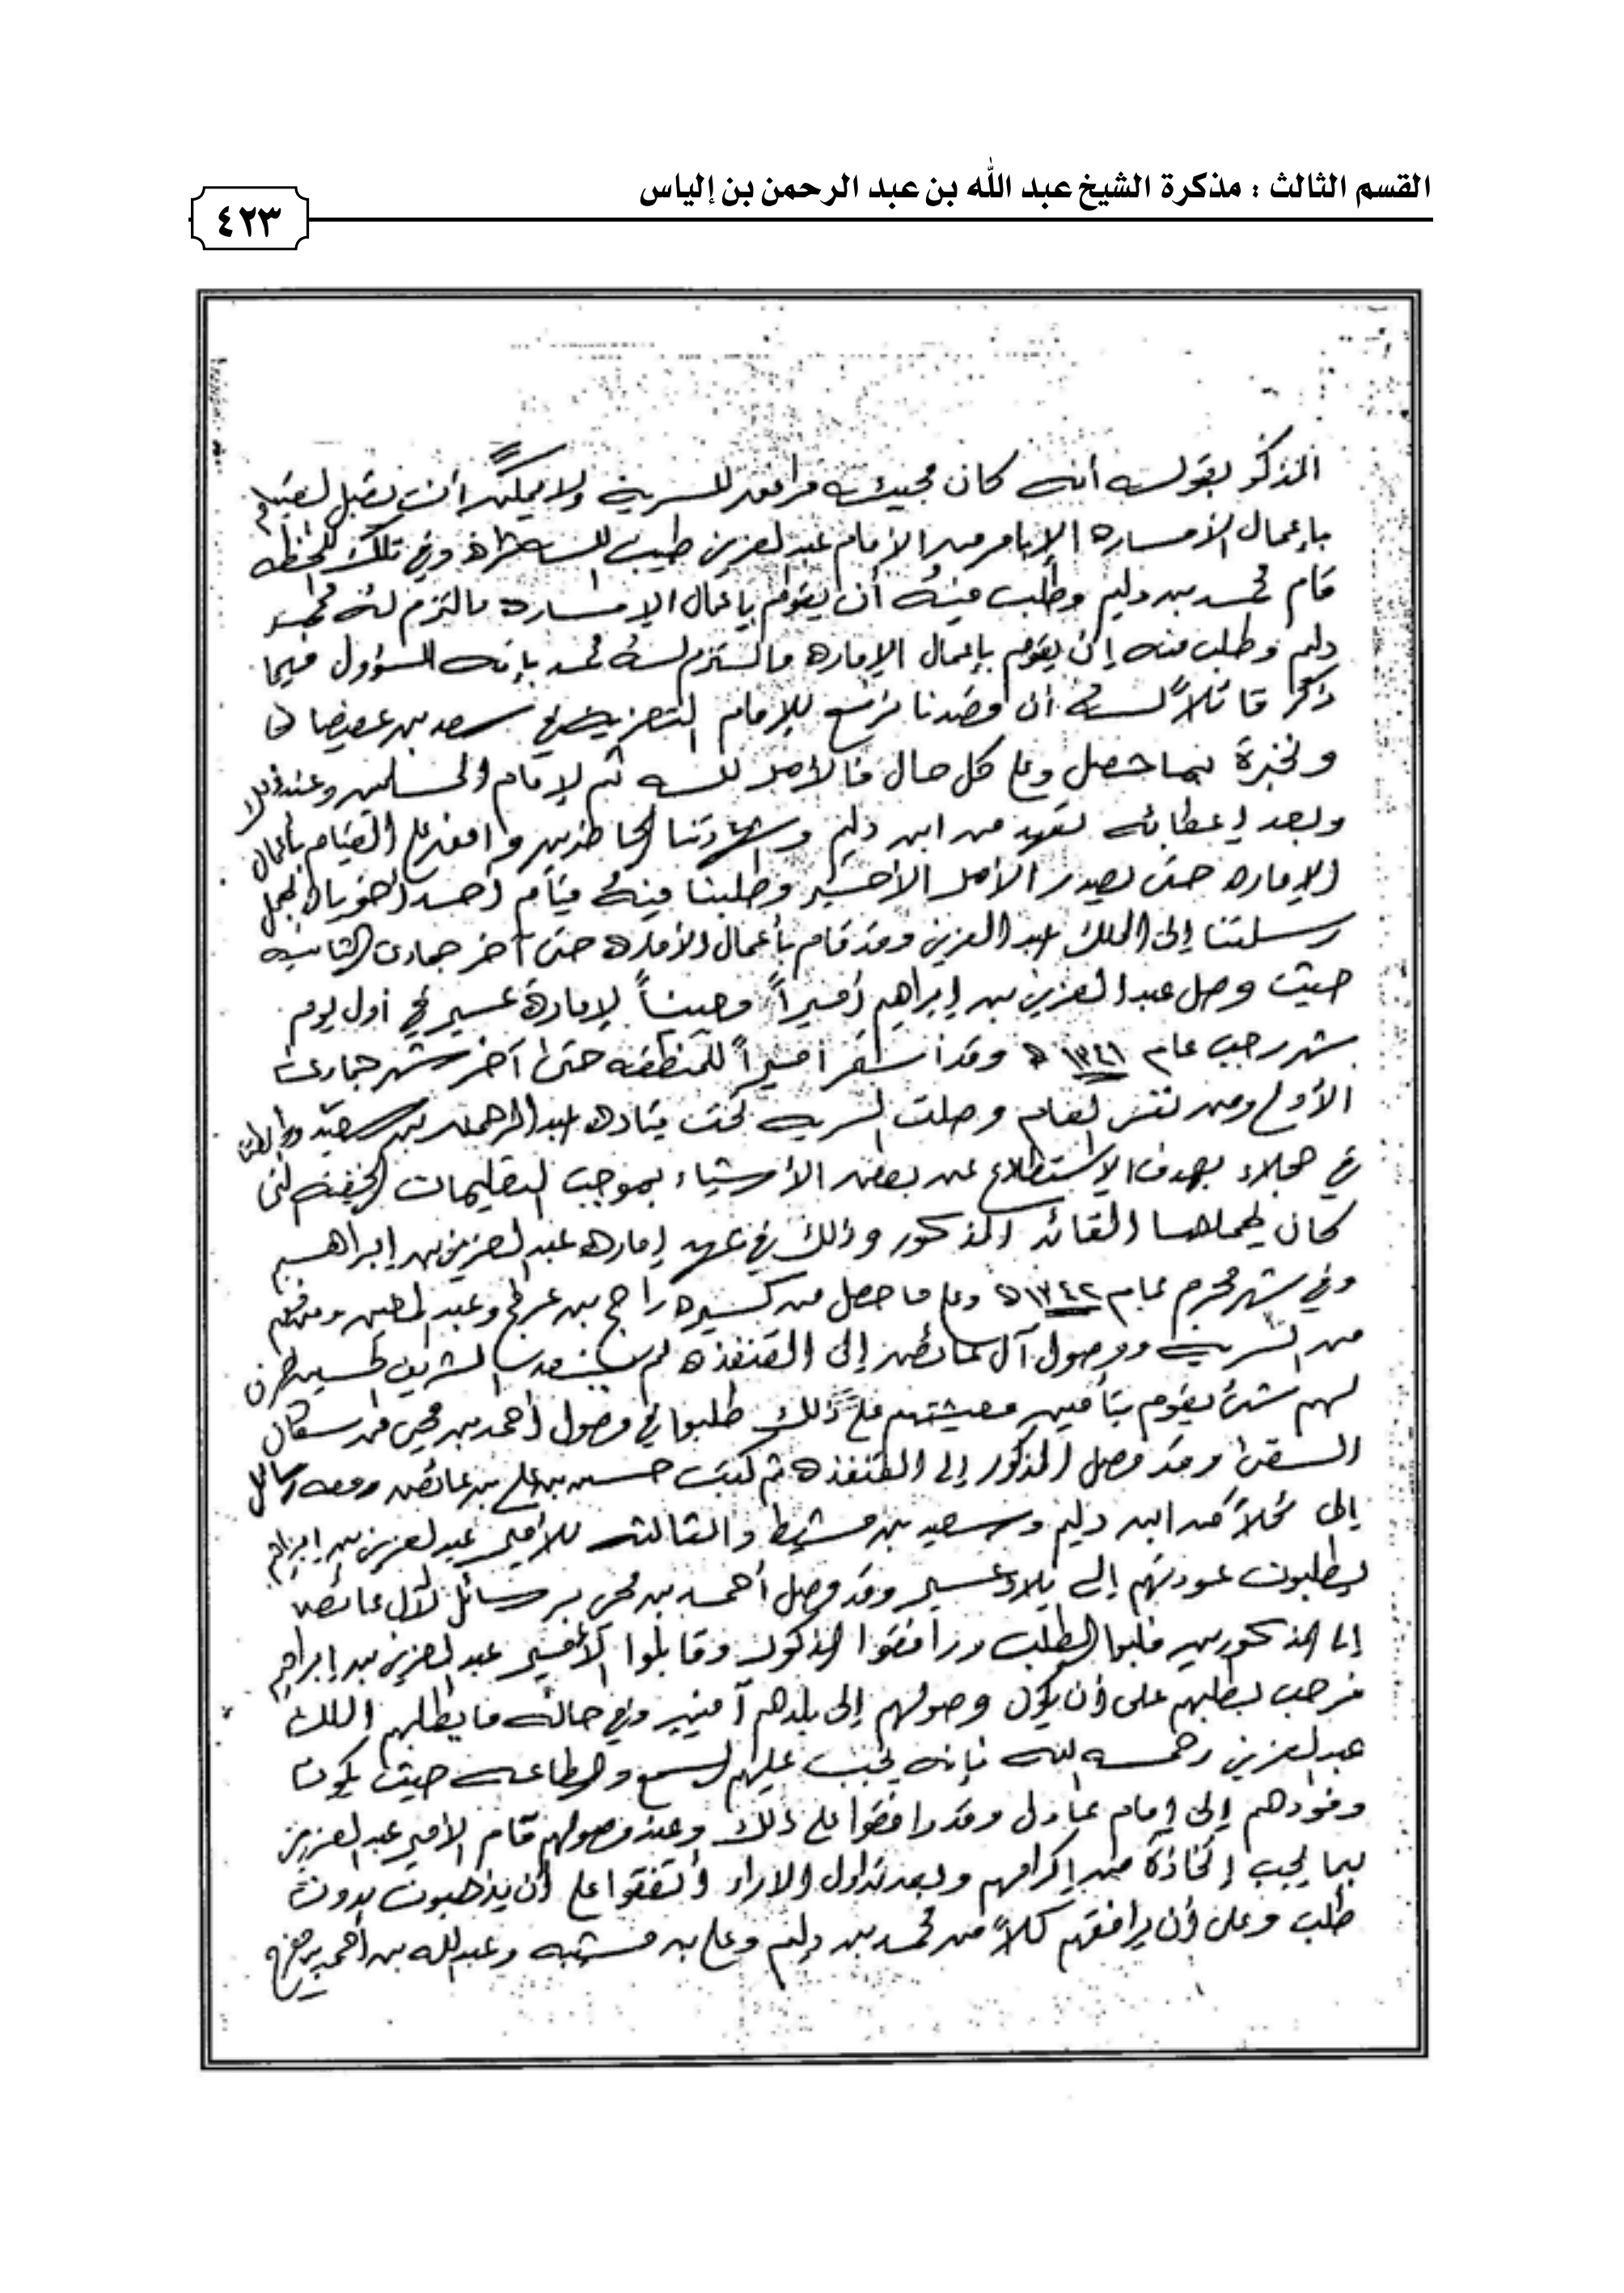 القسم الثالث : مذكرة الشيخ عبد الله بن عبد الرحمن بن إلياس
٤٢٣
المذكور بقوله أنه كان مجيئه مرافق للسرية ولا يمكن أن يقبل القيام
بإعمال الأمارة إلا بأمر من الإمام عبد العزيز طيب الله ثراه وفي تلك اللحظه
قام محمد بن دليم وطلب منه أن يقوم بإعمال الإمارة والتزم له محمد
دليم وطلب منه إن يقوم بإعمال الإماره والتزم له محمد بإنه المسؤول فيما
ذكر قائلاً له أن قصدنا نرفع للإمام التعزية في سعد بن عفيصان
ونخبرة بما حصل وعلى كل حال فالأمر لله ثم لإمام المسلمين وعند ذلك
وبعد إعطائه تعهد من ابن دليم وشهادتنا الحاضرين وافق على القيام بأعمال
الإماره حتى يصدر الأمر الأخير وطلبنا منه قيام أحد أخوياه بحمل
رسلتنا إلى الملك عبد العزيز وقد قام بأعمال الأماره حتى آخر جمادى الثانيه
حيث وصل عبد العزيز بن إبراهيم أميراً وعيناً لإمارة عسير في أول يوم
شهر رجب عام ١٣٤١ هـ وقد استقر أميراً للمنطقه حتى آخر شهر جمادى
الأول ومن نفس العام وصلت السريه تحت قياده عبد الرحمن بن سعيد
في حجلاء بهدف الإستطلاع عن بعض الأشياء بموجب التعليمات الخفيه التي
كان يحملها القائد المذكور وذلك في عهد إماره عبد العزيز بن إبراهيم
وفي شهر محرم عام ١٣٤٢ هـ وعلى ما حصل من كسيره راجح بن عرطج وعبد المعين ومن معهم
من السريه ووصول آل عائض إلى القنفذه لم الشريف الحسين صرف
لهم شئ يقوم بتأمين معيشتهم على ذلك طلبوا في وصول أحمد بن محي من سكان
السقى وقد وصل المذكور إلى القنفذه ثم كتب حسن بن علي بن عائض ومعه رسائل
إلى كلاً من ابن دليم وسعيد بن مشيط والثالثه للأمير عبد العزيز بن إبراهيم
يطلبون عودتهم إلى بلاد عسير وقد وصل أحمد بن محي برسائل لآل عائض
إلى المذكورين فلبوا الطلب ورافقوا المذكور وقابلوا الأمير عبد العزيز بن إبراهيم
فرحب بطلبهم على أن يكون وصولهم إلى بلدهم آمنين وفي حاله ما يطلبهم الملك
عبد العزيز رحمه الله فإنه يجب عليهم السمع والطاعه حيث يكون
وفودهم إلى إمام عادل وقد وافقوا على ذلك وعند وصولهم قام الأمير عبد العزيز
بما يجب إتخاذة من إكرامهم وبعد تداول الاراء وأتفقوا على أن يذهبون بدون
طلب وعلى أن يرافقهم كلاً من محمد بن دليم وعلي بن مشبه وعبد الله بن أحمد بن مفرح